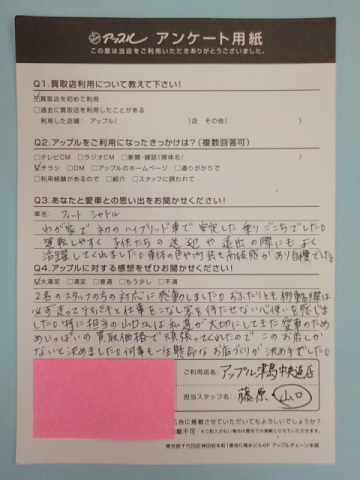 アップル アンケート用紙
この度は当店をご利用いただきありがとうございました。
Q1.買取店利用について教えて下さい!
☑買取店を初めて利用
□過去に買取店を利用したことがある
利用した店舗: アップル( )店 その他( )
Q2.アップルをご利用になったきっかけは?(複数回答可)
□テレビCM □ラジオCM □新聞・雑誌(媒体名/ )
☑チラシ □DM □アップルのホームページ □通りがかりで
□利用経験があるので □紹介 □スタッフに誘われて
Q3.あなたと愛車との思い出をお聞かせください!
車名: フィット シャトル
わが家で初のハイブリッド車で安定した乗りごこちでした。
運転しやすく子供たちの送迎や遠出の際にもよく
活躍してくれました。車体の色や内装も高級感があり自慢でした
Q4.アップルに対する感想をぜひお聞かせください!
☑大満足 □満足 □普通 □もう少し □不満
2名のスタッフの方の対応に感動しました。おふたりとも移動の際は
必ず走ってテキパキと仕事をこなし客を待たせない心使いを感じま
した。特に担当の山口さんは私達が大切にしてきた愛車のため
めいっぱいの買取価格で頑張ってくれたのでこのお店しか
ないと決めました。何事も一生懸命なお店づくりが決め手でした。
ご利用店名 アップル津島中央通店
担当スタッフ名 藤原 山口
他に掲載させていただいてもよろしいでしょうか?
東京都千代田区神田佐木町1番地5清水ビル6F アップルチェーン本部